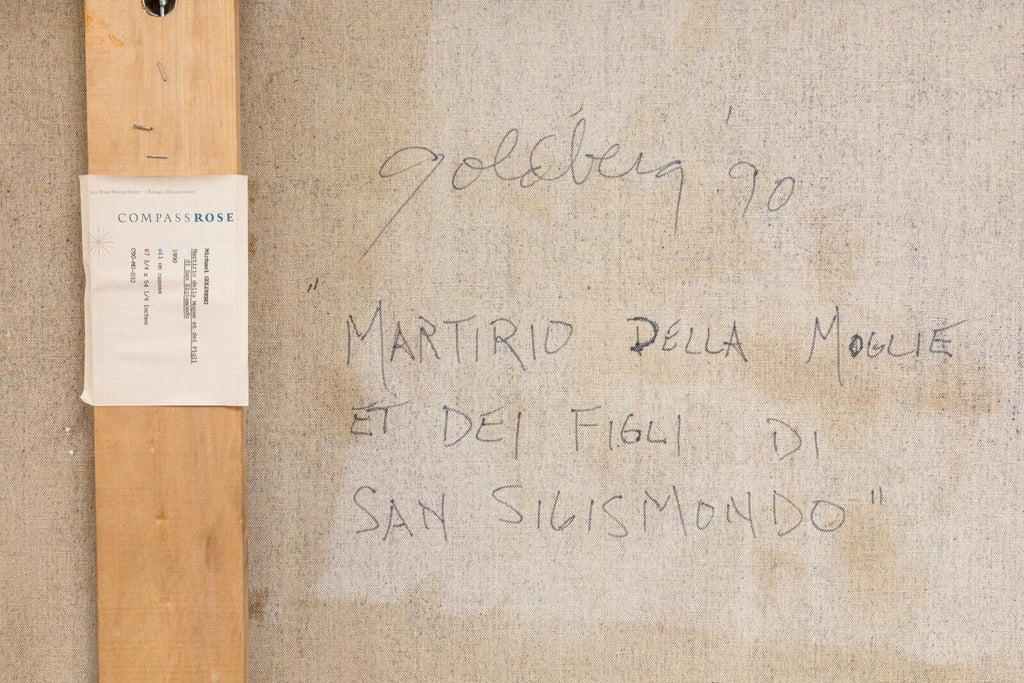 Goldberg '90
"MARTIRIO DELLA MOGLIE
ET DEI FIGLI DI
SAN SIGISMONDO"
325 West Huron Street Chicago, Illinois 60610
COMPASSROSE
Michael GOLDBERG
Martirio della Mogme et dei Figli
di San Sigismondo
1990
oil on canvas
67 3/4 x 54 1/4 inches
C90-MG-032